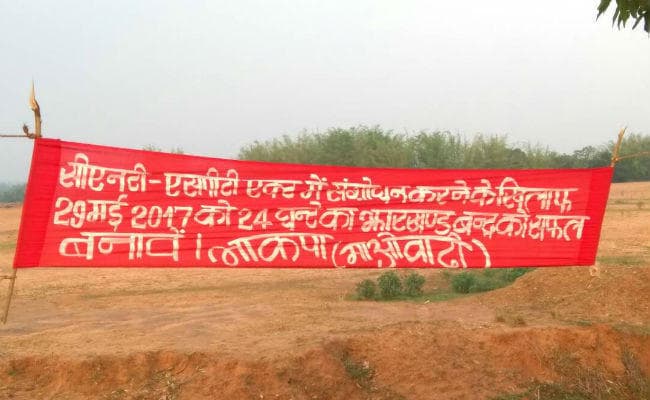 सीएनटी-एसपीटी एक्ट में संशोधन करने के खिलाफ
29 मई 2017 को 24 घन्टे का झारखण्ड बन्द को सफल
बनावें। भाकपा (माओवादी)